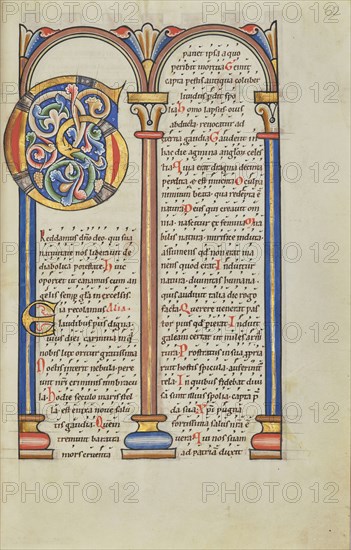 62
G
Reddamus dño deo. qui sua
natiuitate nos liberauit de
diabolica potestate. Huic
oportet ut canamus cum an
gelis semp gla in excelsis.
Eia recolamus. Alia.
laudibus piis digna.
huius diei carmina in q
nobis lux oritur gratissima
Noctis interit nebula. pere
unt nri criminis umbracu
la. Hodie seculo maris stel
la. est enixa noue salu
tis gaudia. Quem
tremunt baratra
mors cruenta
pauet ipsa a quo
peribit mortua. Gemit
capta pestis antiqua coluber
liuidus pdit spo
lia. Homo lapsus. ouis
abducta reuocatur ad
eterna gaudia. Gaudent in
hac die agmina anglor celes
tia. Quia erat dragma decima
perdita & e inuenta. O culpa
nimium beata. qua redepta e
natura. Deus qui creauit om
nia. nascitur ex femina. Mi
rabilis natura. mirifice induta.
assumens qd non erat ma
nens quod erat. Induitur
natura. diuinitas humana.
quis audiuit talia dic rogo
facta. Querere uenerat pas
tor pius qd perierat. Induit
galeam certat ut miles arma
tura. Prostratus in sua ppria
ruit hostis spicula. auferunt
tela. In quibus fidebat. diui
sa sunt illius spolia. capta p
da sua. Xpi pugna
fortissima salus nra e
uera. Qui nos suam
ad patriam duxit
PHOTO12